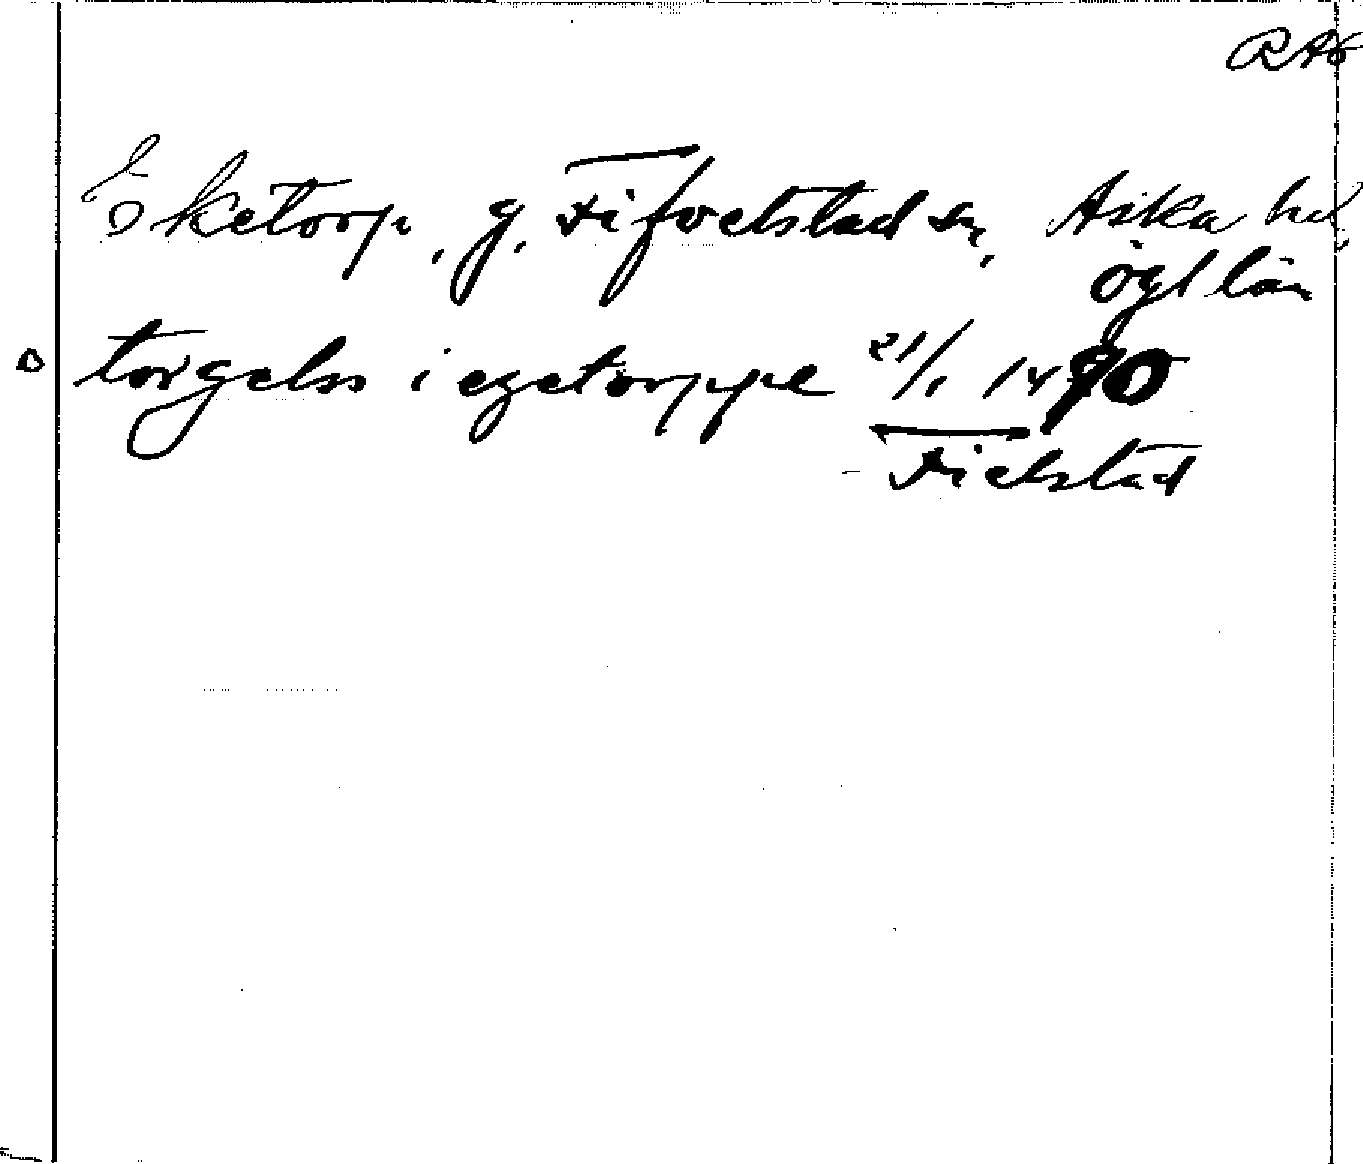 RAö
Eketorp, g. Fifvelstad sn, Aska hd,
ögl län
torgelss i egetorppe 21/1 1490
Fielstad